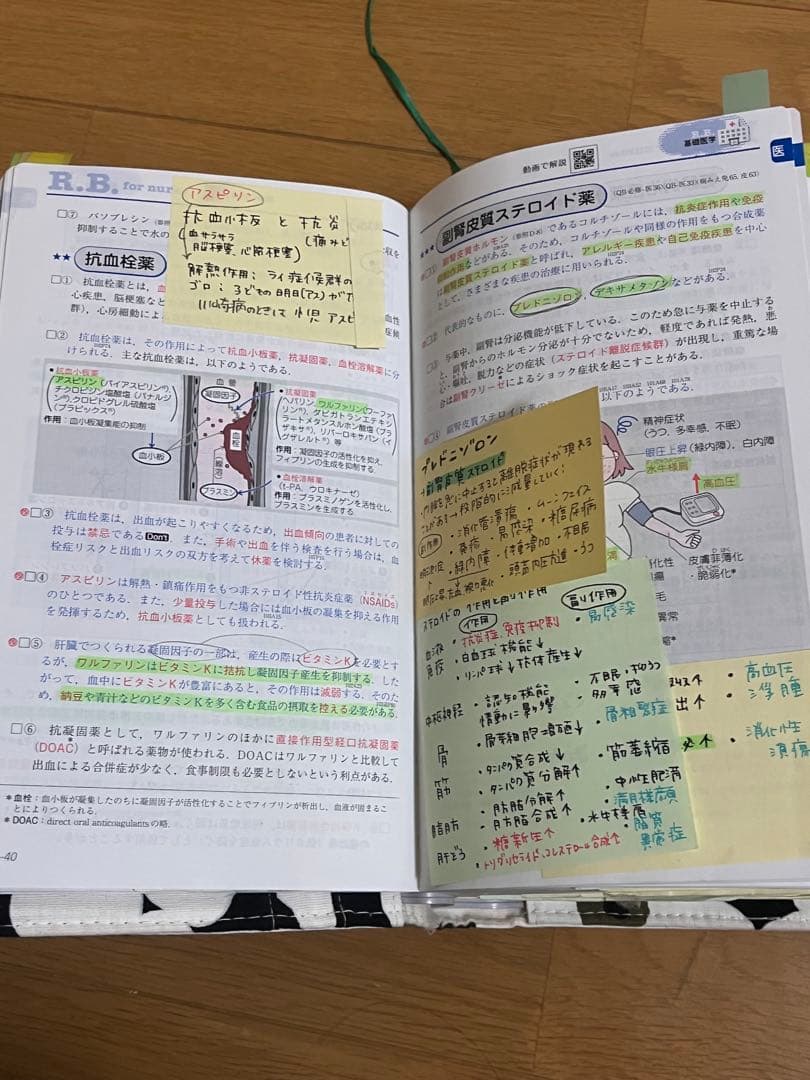 R.B. for nur
□⑦ バソプレシン
抑制することで水の
アスピリン
抗血小板 と 抗炎
血サラサラ (痛みど
脳梗塞、心筋梗塞)
解熱作用：ライ症候群の
ゴロ：子どもの明日(アス)が
川崎病のときは 小児 アスピ
★★ 抗血栓薬
□① 抗血栓薬とは，血
心疾患，脳梗塞など
群），心房細動によ
□② 抗血栓薬は，その作用によって抗血小板薬，抗凝固薬，血栓溶解薬に分
けられる．主な抗血栓薬は，以下のようである．
● 抗血小板薬
アスピリン（バイアスピリン®），
チクロピジン塩酸塩（パナルジ
ン®），クロピドグレル硫酸塩
（プラビックス®）
作用：血小板凝集能の抑制
血管
凝固因子
血栓
血小板
線溶
プラスミン
● 抗凝固薬
ヘパリン，ワルファリン（ワーファ
リン®），ダビガトランエテキシ
ラートメタンスルホン酸塩（プラ
ザキサ®），リバーロキサバン（イ
グザレルト®）等
作用：凝固因子の活性化を抑え，
フィブリンの生成を抑制する．
● 血栓溶解薬
（t-PA，ウロキナーゼ）
作用：プラスミノゲンを活性化し，
プラスミンを生成する
□③ 抗血栓薬は，出血が起こりやすくなるため，出血傾向の患者に対しての
投与は禁忌である Don't ．また，手術や出血を伴う検査を行う場合は，血
栓症リスクと出血リスクの双方を考えて休薬を検討する．
□④ アスピリンは解熱・鎮痛作用をもつ非ステロイド性抗炎症薬（NSAIDs）
のひとつである．また，少量投与した場合には血小板の凝集を抑える作用
を発揮するため，抗血小板薬としても扱われる．
□⑤ 肝臓でつくられる凝固因子の一部は，産生の際にビタミンKを必要とす
るが，ワルファリンはビタミンKに拮抗し凝固因子産生を抑制する．した
がって，血中にビタミンKが豊富にあると，その作用は減弱する．そのた
め，納豆や青汁などのビタミンKを多く含む食品の摂取を控える必要がある．
□⑥ 抗凝固薬として，ワルファリンのほかに直接作用型経口抗凝固薬
（DOAC）と呼ばれる薬物が使われる．DOACはワルファリンと比較して
出血による合併症が少なく，食事制限も必要としないという利点がある．
＊血栓：血小板が凝集したのちに凝固因子が活性化することでフィブリンが析出し，血液が固まるこ
とによりつくられる．
＊DOAC：direct oral anticoagulantsの略．
-40
R.B.
基礎医学
医
動画で解説
副腎皮質ステロイド薬
★★★
副腎皮質ホルモン であるコルチゾールには，抗炎症作用や免疫
抑制作用などがある．そのため，コルチゾールや同様の作用をもつ合成薬
は副腎皮質ステロイド薬と呼ばれ，アレルギー疾患や自己免疫疾患を中心
として，さまざまな疾患の治療に用いられる．
□② 代表的なものに，プレドニゾロン，デキサメタゾンなどがある．
□③ 与薬中，副腎は分泌機能が低下している．このため急に与薬を中止する
と，副腎からのホルモン分泌が十分でないため，軽度であれば発熱，悪
心・嘔吐，脱力などの症状（ステロイド離脱症候群）が出現し，重篤な場
合は副腎クリーゼによるショック症状を起こすことがある．
副腎皮質ステロイド薬の
以下のようである．
精神症状
（うつ，多幸感，不眠）
眼圧上昇（緑内障），白内障
水牛様肩
高血圧
皮膚菲薄化
・脆弱化＊
プレドニゾロン
副腎皮質ステロイド
内服を急に中止すると離脱症状が現れる
段階的に減量していく！
副作用
・消化管潰瘍 ・ムーンフェイス
・易感染 ・糖尿病
・緑内障 ・体重増加 ・不眠
・頭蓋内圧亢進 ・うつ
ステロイドの作用と副作用
作用 副作用
血液 ・抗炎症、免疫抑制 ・易感染
免疫 ・白血球 機能↓
・リンパ球↓ 抗体産生↓
中枢神経 ・認知機能 ・不眠・抑うつ
情動に影響 多幸感
骨 ・骨芽細胞増殖↓ ・骨粗鬆症
筋 ・タンパク質合成↓ ・筋萎縮
・タンパク質分解↑
脂肪 ・脂肪分解↑ ・中心性肥満
・脂肪合成↑ 満月様顔
・水牛様肩
肝ぞう ・糖新生↑ ・脂質
・トリグリセライド、コレステロール合成↑ 異常症
・高血圧
・浮腫
・消化性
潰瘍